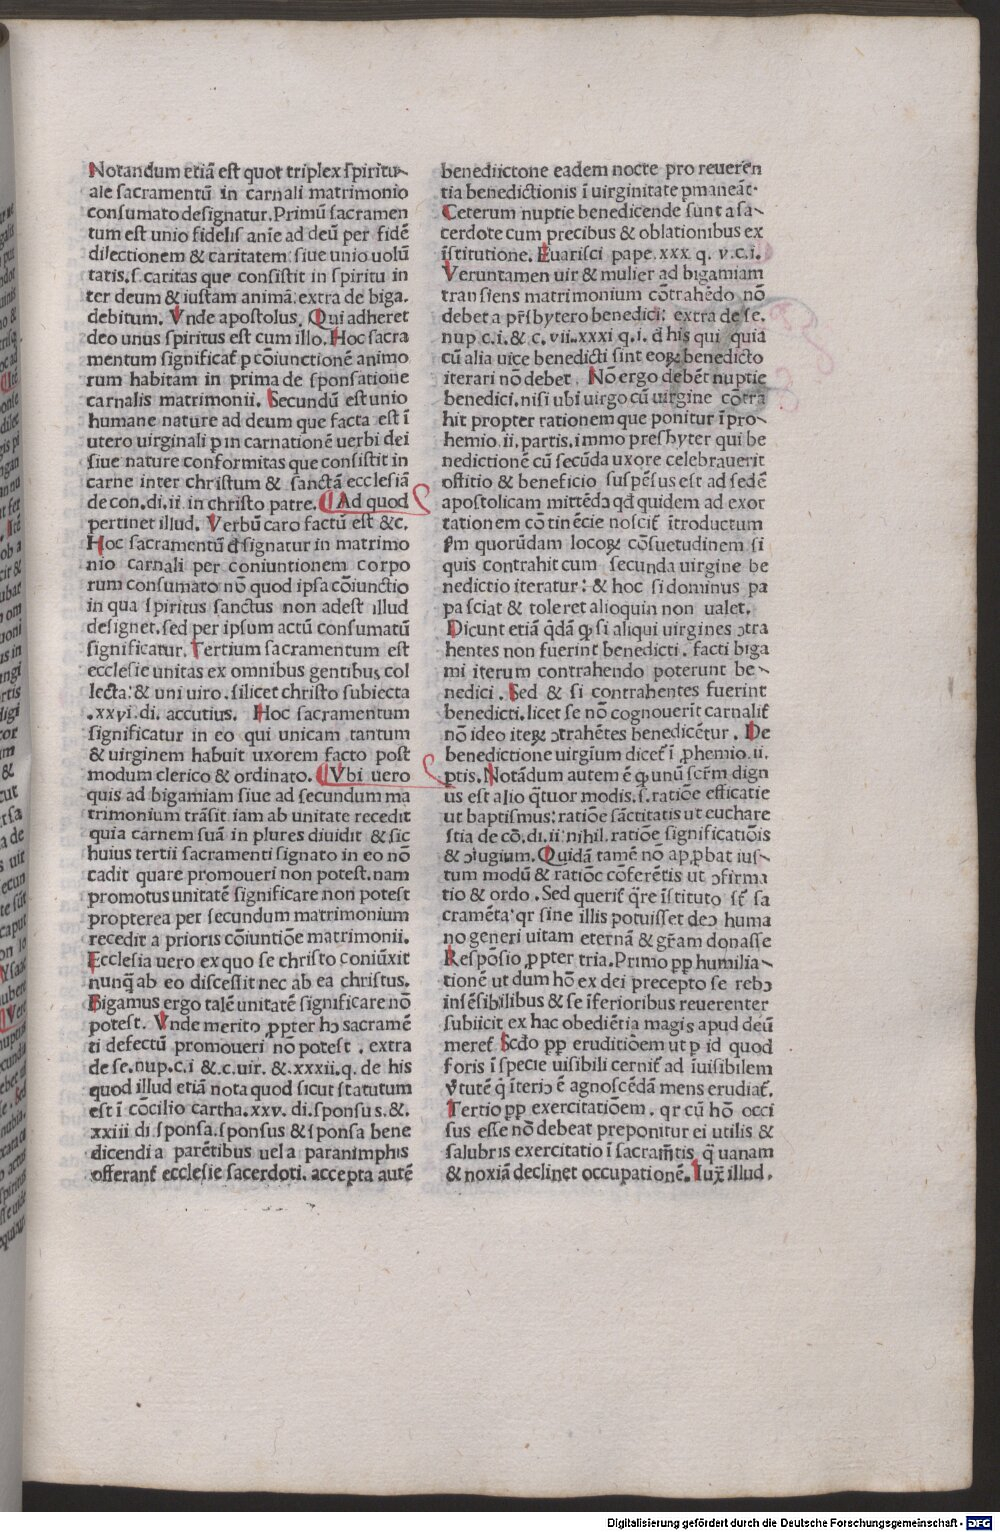 Notandum etiā est quot triplex spiritu-
ale sacramentū in carnali matrimonio
consumato designatur. Primū sacramen
tum est unio fidelis anīe ad deū per fidē
dilectionem & caritatem: siue unio uolū
tatis. s. caritas que consistit in spiritu in
ter deum & iustam animā: extra de biga.
debitum. Vnde apostolus. Qui adheret
deo unus spiritus est cum illo. Hoc sacra
mentum significat̄ p cōiunctionē animo
rum habitam in prima de sponsatione
carnalis matrimonii. Secundū est unio
humane nature ad deum que facta est ī
utero uirginali p in carnationē uerbi dei
siue nature conformitas que consistit in
carne inter christum & sanctā ecclesiā
de con. di. ii. in christo patre. ¶ Ad quod
pertinet illud. Verbū caro factū est &c.
Hoc sacramentū đsignatur in matrimo
nio carnali per coniuntionem corpo
rum consumato nō quod ipsa cōiunctio
in qua spiritus sanctus non adest illud
designet. sed per ipsum actū consumatū
significatur. Tertium sacramentum est
ecclesie unitas ex omnibus gentibus col
lecta: & uni uiro. silicet christo subiecta
.xxvi. di. accutius. Hoc sacramentum
significatur in eo qui unicam tantum
& uirginem habuit uxorem facto post
modum clerico & ordinato. ¶ Vbi uero
quis ad bigamiam siue ad secundum ma
trimonium trāsit iam ab unitate recedit
quia carnem suā in plures diuidit & sic
huius tertii sacramenti signato in eo nō
cadit quare promoueri non potest. nam
promotus unitatē significare non potest
propterea per secundum matrimonium
recedit a prioris cōiuntiōe matrimonii.
Ecclesia uero ex quo se christo coniūxit
nunq̄ ab eo discessit nec ab ea christus.
Bigamus ergo talē unitatē significare nō
potest. Vnde merito ꝓpter hɔ sacramē
ti defectū promoueri nō potest . extra
de se. nup. c. i &. c. uir. &. xxxii. q. de his
quod illud etiā nota quod sicut statutum
est ī cōcilio cartha. xxv. di. sponsus. &.
xxiii di sponsa. sponsus & sponsa bene
dicendi a parētibus uel a paranimphis
offerant̄ ecclesie sacerdoti. accepta autē
benedictione eadem nocte pro reueren
tia benedictionis ī uirginitate pmaneāt.
Ceterum nuptie benedicende sunt a sa-
cerdote cum precibus & oblationibus ex
īstitutione. Euarisci pape. xxx q. v. c. i.
Veruntamen uir & mulier ad bigamiam
transiens matrimonium cōtrahēdo nō
debet a p̄rsbytero benedici; extra de se.
nup c. i. & c. vii. xxxi q. i. đ his qui quia
cū alia uice benedicti sint eoꝝ benedicto
iterari nō debet. Nō ergo debēt nuptie
benedici. nisi ubi uirgo cū uirgine cōtra
hit propter rationem que ponitur ī pro-
hemio. ii. partis. immo presbyter qui be
nedictionē cū secūda uxore celebrauerit
offitio & beneficio suspēsus est ad sedē
apostolicam mittēdɔ qđ quidem ad exor
tationem cōtinēcie noscit̄ ītroductum
ẜm quorūdam locoꝝ cōsuetudinem si
quis contrahit cum secunda uirgine be
nedictio iteratur: & hoc si dominus pa
pa sciat & toleret alioquin non ualet.
Dicunt etiā q̄dā ꝙ si aliqui uirgines ɔtra
hentes non fuerint benedicti. facti biga
mi iterum contrahendo poterunt be-
nedici. Sed & si contrahentes fuerint
benedicti. licet se nō cognouerīt carnalit̄
nō ideo iteꝝ ɔtrahētes benedicētur. De
benedictione uirgīum dicet̄ ī ꝓhemio. ii.
ptis. Notādum autem ē ꝙ unū scr̄m dign
us est alio q̄tuor modis. s. ratiōe efficatie
ut baptismus: ratiōe sāctitatis ut euchare
stia de cō. di. ii nihil. ratiōe significatiōis
& ɔiugium. Quidā tamē nō apꝓbat ius-
tum modū & ratiōe cōferētis ut ɔfirma
tio & ordo. Sed querit̄ q̄re īstituto st̄ sa
cramēta qr sine illis potuisset deɔ huma
no generi uitam eternā & gr̄am donasse
Respōsio ꝓpter tria. Primo pp humilia-
tionē ut dum hō ex dei precepto se rebɔ
insēsibilibus & se īferioribus reuerenter
subiicit ex hac obediētia magis apud deū
meret̄ Scđo pp eruditiōem ut p id quod
foris ī specie uisibili cernit̄ ad īuisibilem
v̄tutē q̄ īteriɔ ē agnoscēdā mens erudiat̄.
Tertio pp exercitatiōem. qr cū hō occi
sus esse nō debeat preponitur ei utilis &
salubris exercitatio ī sacram̄tis q̄ uanam
& noxiā declinet occupationē. Iux̄ illud.
Digitalisierung gefördert durch die Deutsche Forschungsgemeinschaft - DFG